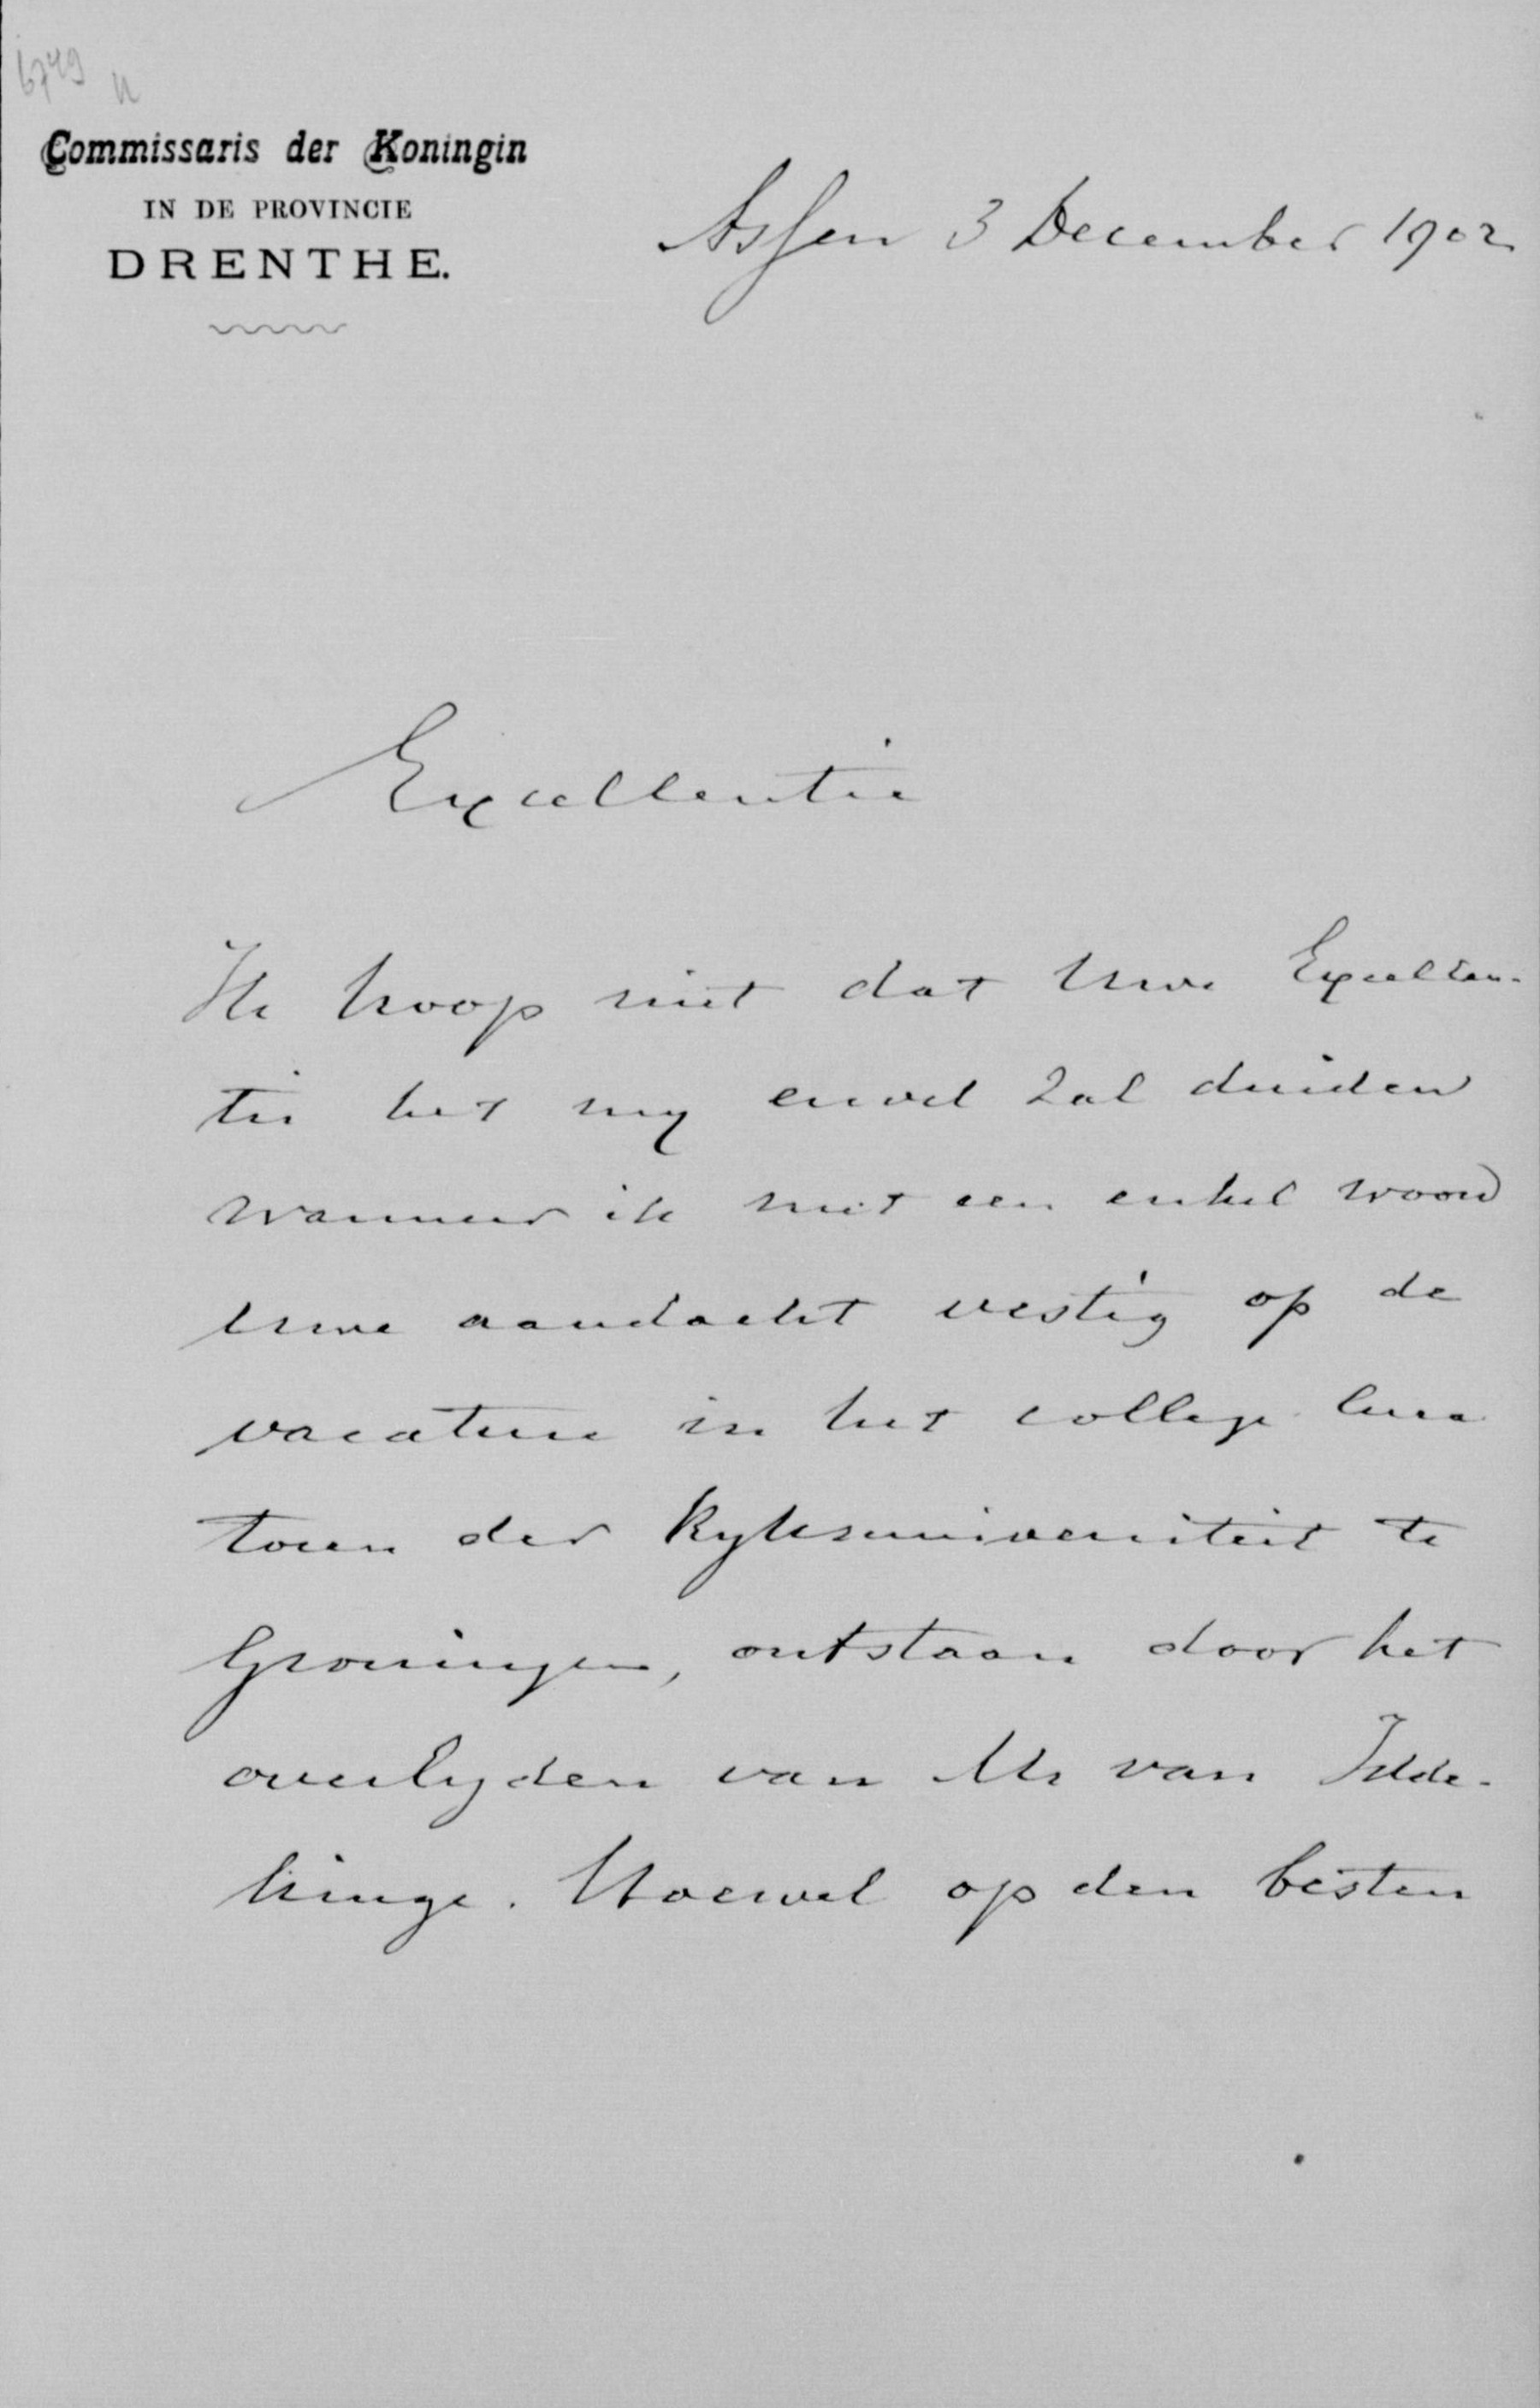 6749
Commissaris der Koningin
IN DE PROVINCIE
DRENTHE.
Assen 3 December 1902
Excellentie
Ik hoop niet dat Uwe Excellen-
tie het my euvel zal duiden
wanneer ik met een enkel woord
Uwe aandacht vestig op de
vacature in het college cura
toren der Ryksuniversiteit te
Groningen, ontstaan door het
overlyden van Mr van Idde-
kinge. Hoewel op den besten